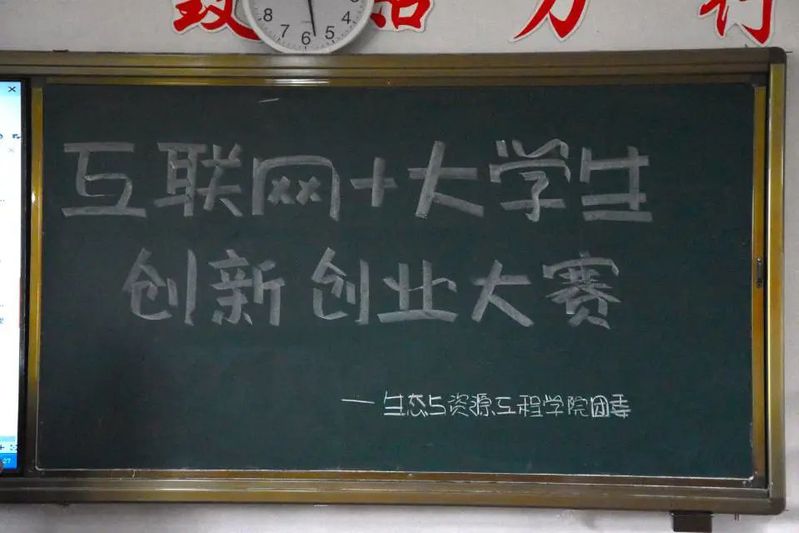 互联网+大学生
创新创业大赛
—生态与资源工程学院团委
8 7 6 5 4